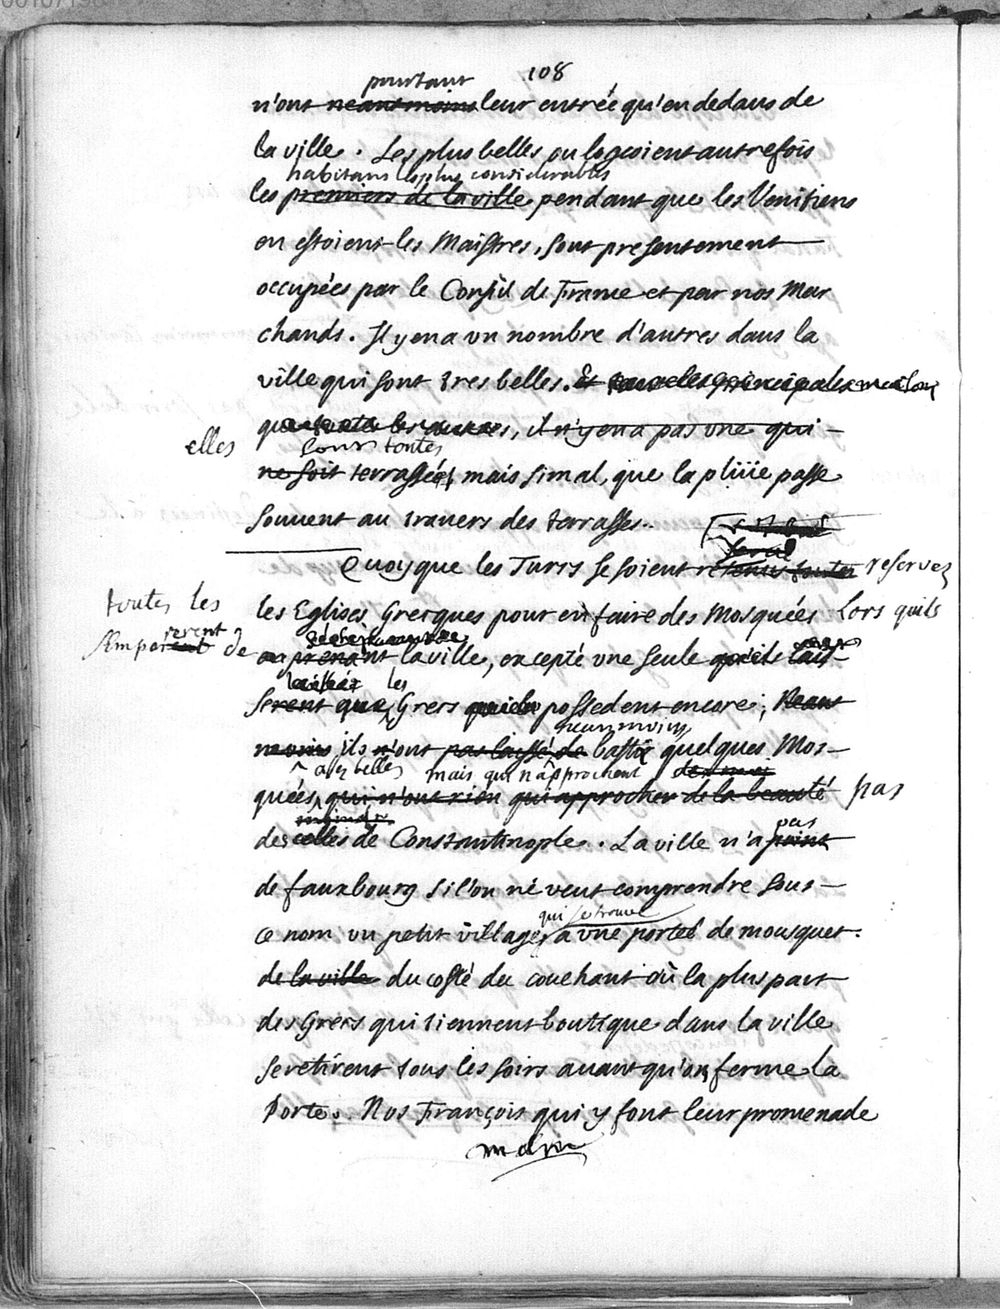 108
pourtant
n'ont neantmoins leur entrée qu'en dedans de
la ville. Les plus belles ou logeoient autrefois
habitans les plus considerables
les premiers de la ville pendant que les Venitiens
en estoient les Maistres, sont presentement
occupées par le Consul de France et par nos Mar
chands. Il y en a un nombre d'autres dans la
ville qui sont tres belles. et principales maisons
, il n'y en a pas une qui
elles sont toutes
ne soit terrassée, mais si mal, que la pluïe passe
souvent au travers des terrasses..
Quoyque les Turcs se soient retenus toutes reservez
toutes les
les Eglises Grecques pour en faire des Mosquées Lors quils
s'emparerent de
en prenant la ville, excepté une seule qu'ils lais-
les
serent que Grecs possedent encore; Neant
neanmoins
moins ils n'ont pas laissé de basti quelques Mos-
assez belles mais qui n'approchent
quées, qui n'ont rien qui approcher de la beauté pas
des celles de Constantinople. La ville n'a point
pas
de fauxbourg si l'on ne veut comprendre sous
qui se trouve
ce nom un petit village, a une portée de mousquet.
de la ville du costé du couchant où la plus part
des Grecs qui tiennent boutique dans la ville
se retirent tous les soirs avant qu'on ferme la
Porte. Nos François qui y font leur promenade